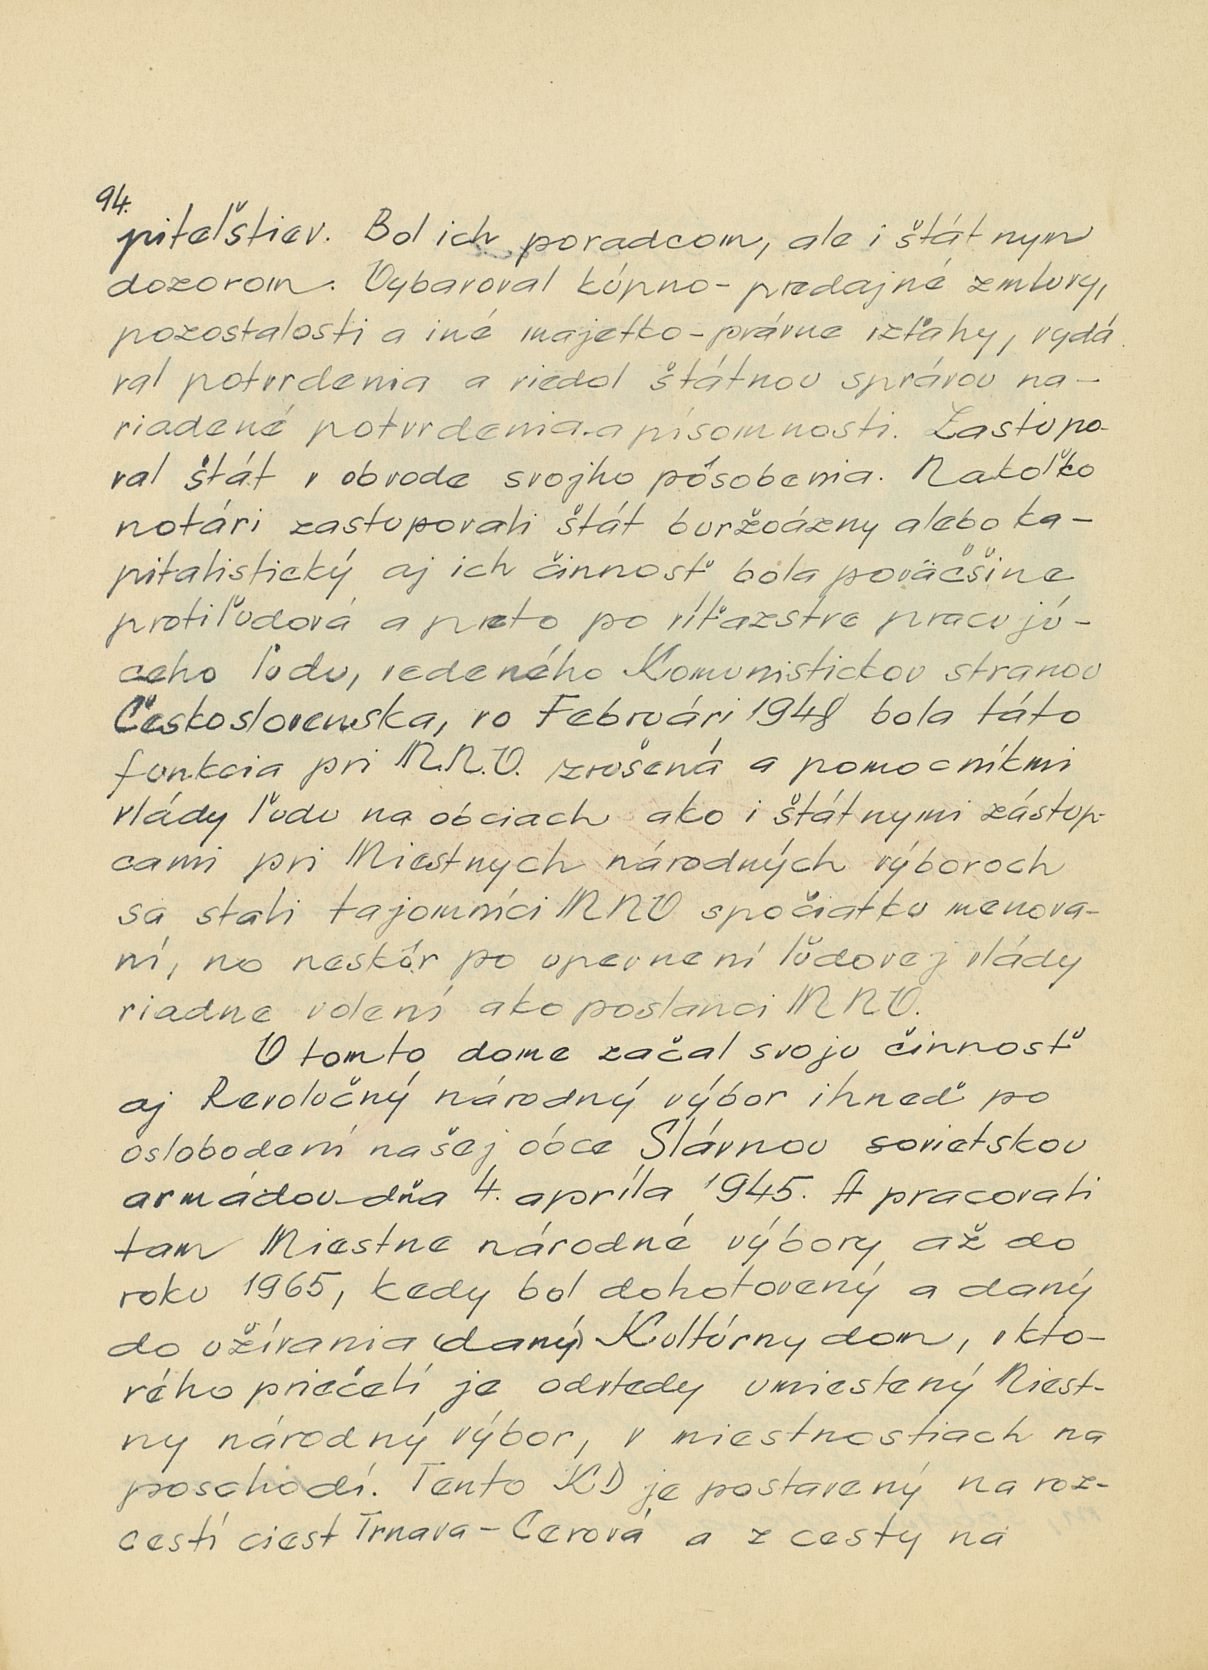 94.
piteľštiev. Bol ich poradcom, ale i štátnym
dozorom. Vybavoval kúpno-predajné zmluvy,
pozostalosti a iné majetko-právne vzťahy, vydá
val potvrdenia a viedol štátnou správou na-
riadené potvrdenia a písomnosti. Zastupo-
val štát v obvode svojho pôsobenia. Nakoľko
notári zastupovali štát buržoázny alebo ka-
pitalistický aj ich činnosť bola poväčšine
protiľudová a preto po víťazstve pracujú-
ceho ľudu, vedeného Komunistickou stranou
Československa, vo Februári 1948 bola táto
funkcia pri M.N.V. zrušená a pomocníkmi
vlády ľudu na obciach ako i štátnymi zástup-
cami pri Miestnych národných výboroch
sa stali tajomníci MNV spočiatku menova-
ní, no neskôr po upevnení ľudovej vlády
riadne volení ako poslanci MNV.
V tomto dome začal svoju činnosť
aj Revolučný národný výbor ihneď po
oslobodení našej obce Slávnou sovietskou
armádou dňa 4. apríla 1945. A pracovali
tam Miestne národné výbory až do
roku 1965, kedy bol dohotovený a daný
do užívania (daný) Kultúrny dom, v kto-
rého priečelí je odvtedy umiestený Miest-
ny národný výbor, v miestnostiach na
poschodí. Tento KD je postavený na roz-
cestí ciest Trnava-Cerová a z cesty na